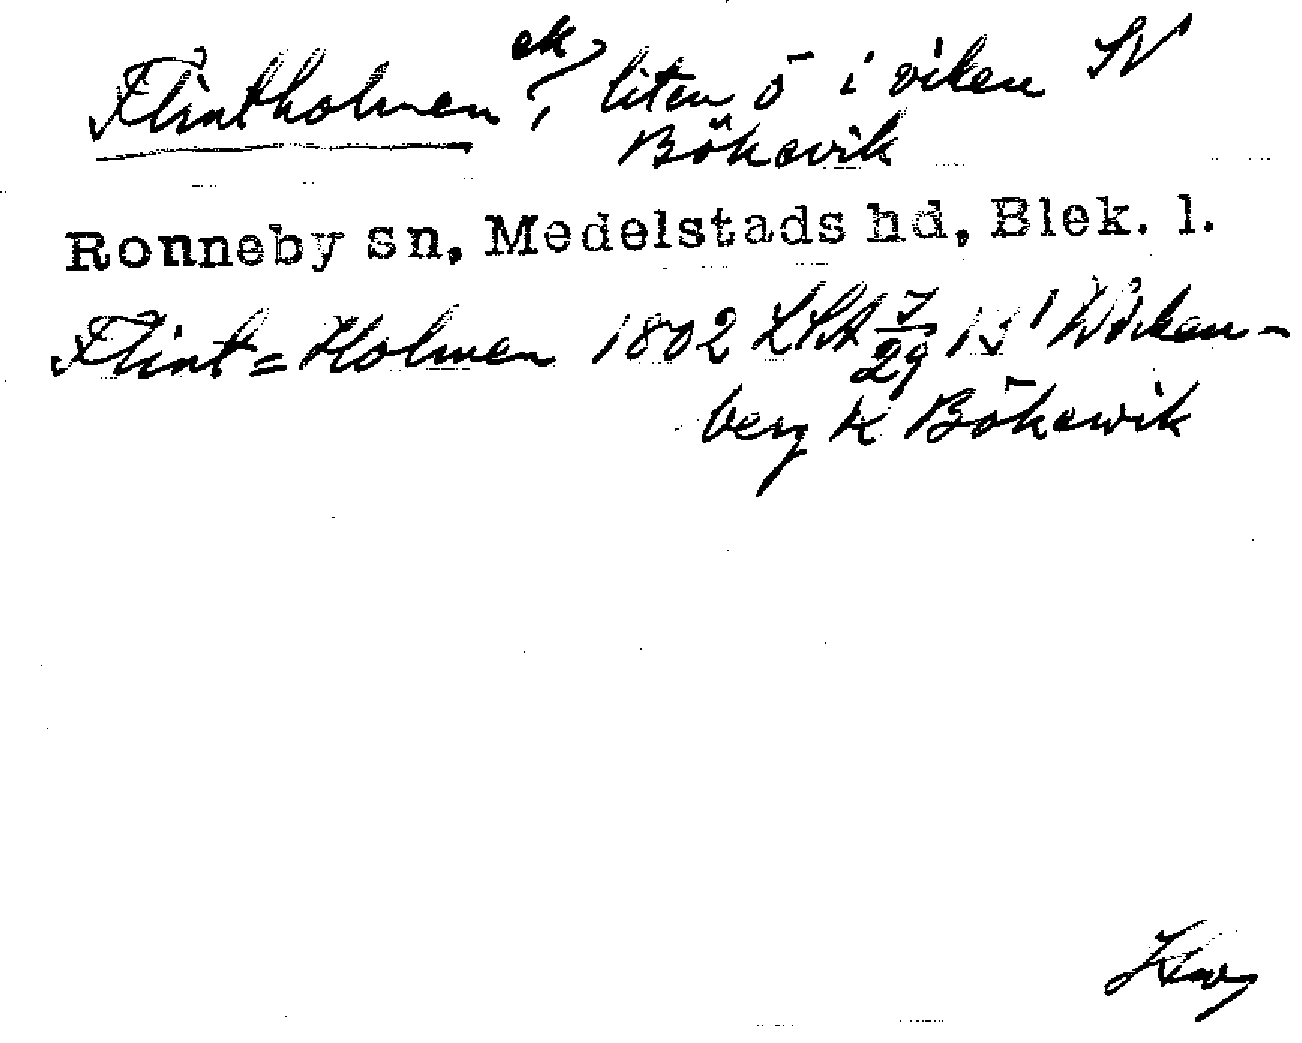 Flintholmen ek, liten ö i viken SV
Bökevik
Ronneby sn, Medelstads hd, Blek. l.
Flint=Holmen 1802 LSA 7/29 13' Wörken-
berg K Bökewik